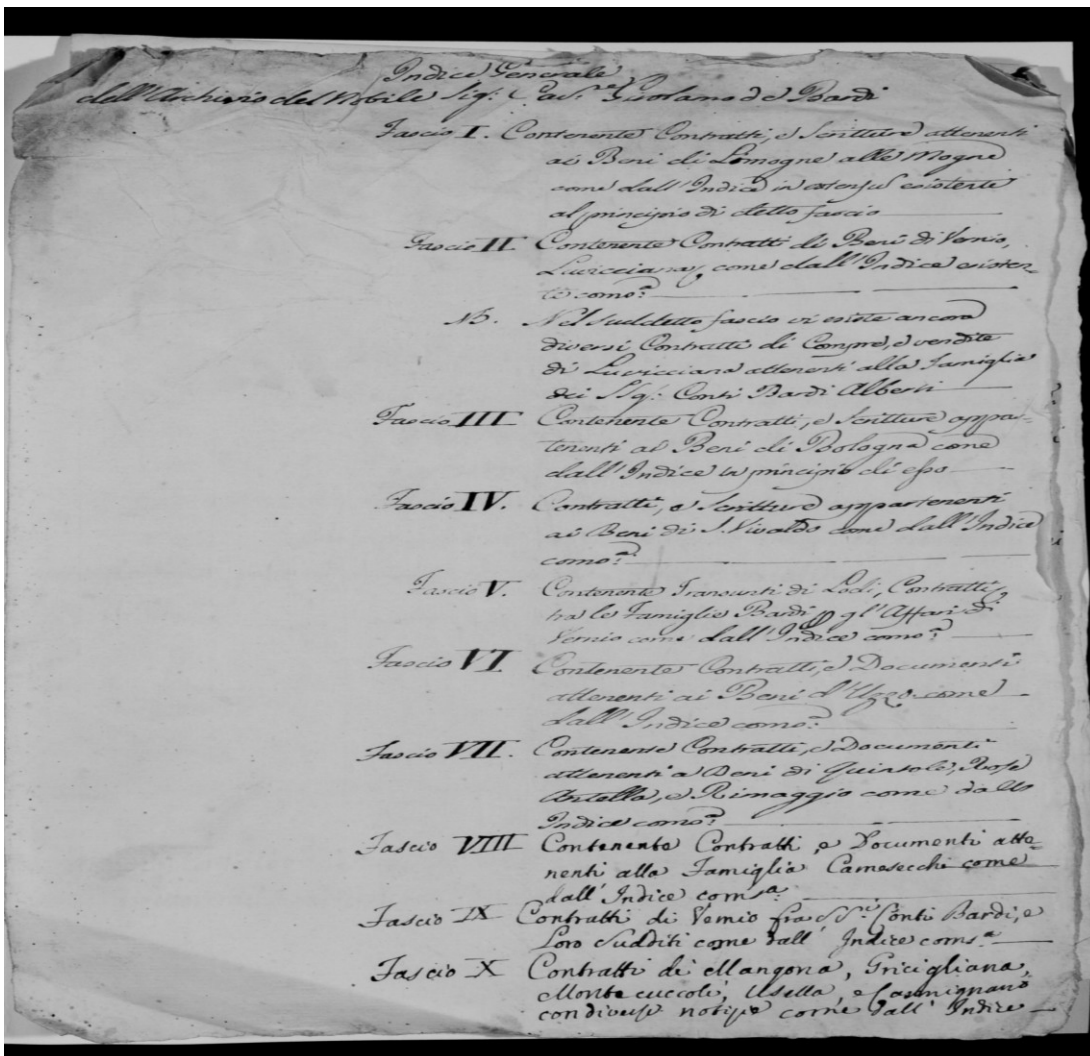 Indice Generale
dell'Archivio del Nobile Sig: Cav:re Girolamo de Bardi
Fascio I. Contenente Contratti, e Scritture attenenti
ai Beni di Limogne alle Mogne
come dall'Indice in esistente
al principio di detto fascio
Fascio II Contenente Contratti di Beni di Vernio,
Luicciana, come dall'Indice esisten-
te come sa
NB. Nel suddetto fascio vi esiste ancora
diversi Contratti di Compre, e vendite
di Luicciana attenenti alla Famiglia
dei SSg: Conti Bardi Alberti
Fascio III Contenente Contratti, e Scritture appar-
tenenti ai Beni di Bologna come
dall'Indice in principio di esso
Fascio IV. Contratti, e Scritture appartenenti
ai Beni di S. Vivaldo come dall'Indice
come sa
Fascio V. Contenente Transunti di Lodi, Contratti
tra le Famiglie Bardi gl'Affari di
Vernio come dall'Indice come sa
Fascio VI Contenente Contratti, e Documenti
attenenti ai Beni d'Uzzo come
dall'Indice come sa
Fascio VII. Contenense Contratti, e Documenti
attenenti a Beni di Quintole, Rose
Antella, e Rimaggio come dallo
Indice come sa
Fascio VIII Contenente Contratti, e Documenti atte-
nenti alla Famiglia Carnesecchi come
dall'Indice come sa
Fascio IX Contratti di Vernio fra SS:ri Conti Bardi, e
Loro Sudditi come dall'Indice come sa
Fascio X Contratti di Mangona, Gricigliana,
Monte cuccoli, Usella, e Carmignano
con diverse notizie come dall'Indice